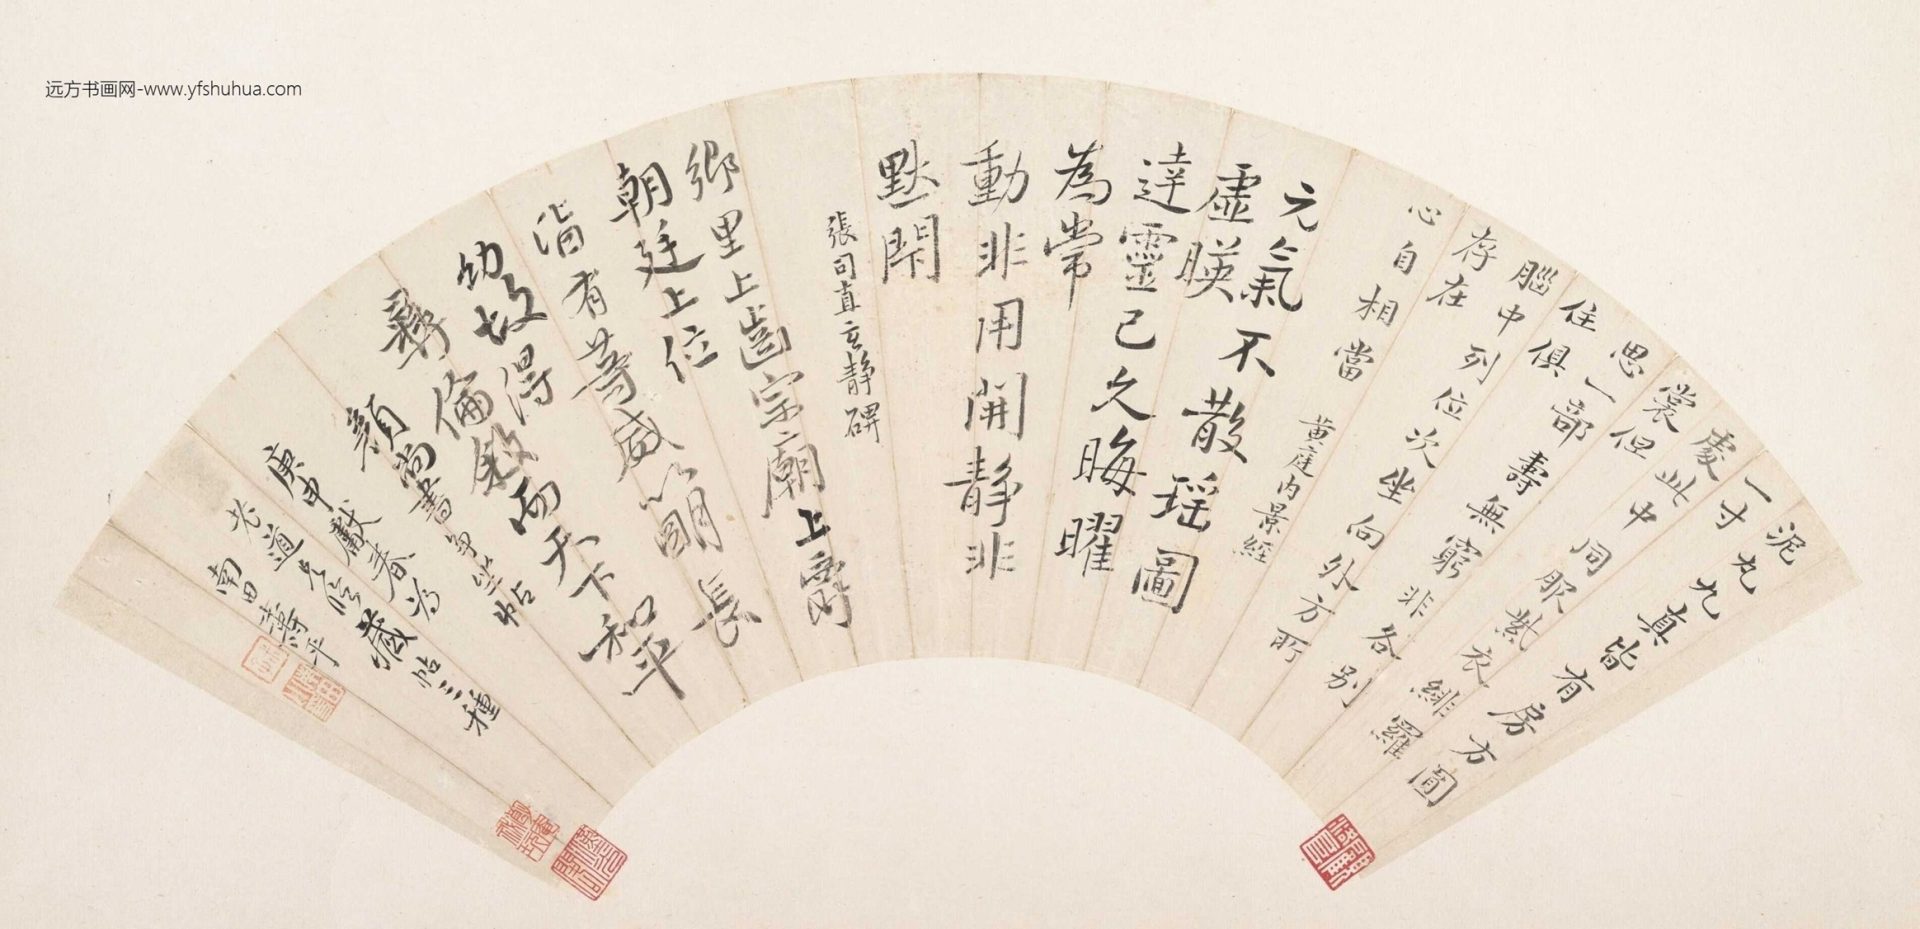 泥丸九真皆有房方圓
一寸
處此中同服紫衣緋羅
裳但
思一部壽無窮非各別
住俱
腦中列位次坐向外方所
存在
心自相當
黃庭內景經
元氣不散瑤圖
虛暎
達靈已久晦曜
為常
動非用開靜非
默閇
張司直玄靜碑
鄉里上齒宗廟上爵
朝廷上位
皆有等威以明長
幼故得
彝倫敘而天下和平
顏尚書爭坐帖
庚申獻春為
老道兄臨藏帖三種
南田壽平
远方书画网-www.yfshuhua.com